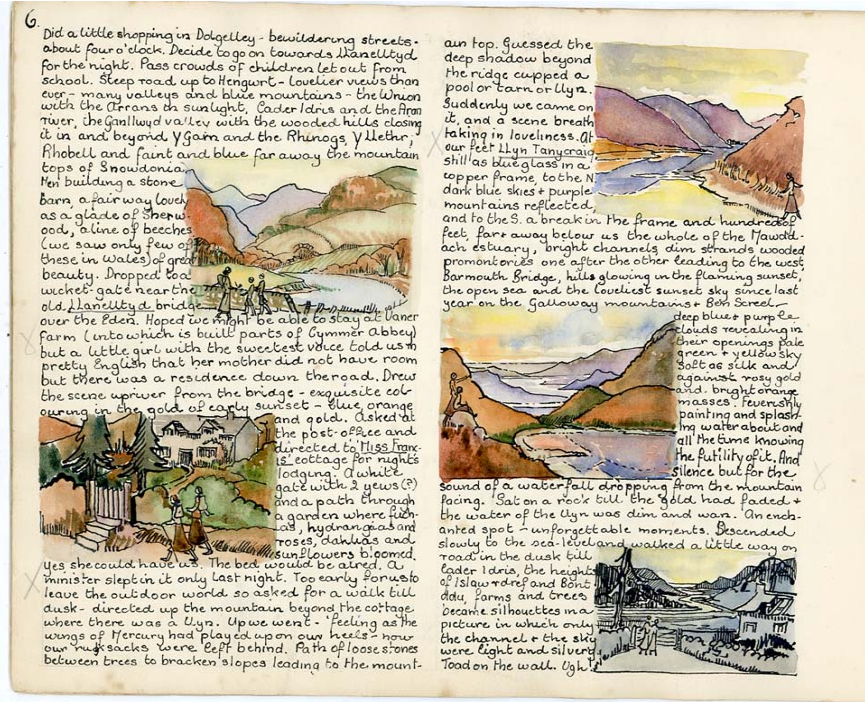 6.
Did a little shopping in Dolgelley - bewildering streets.
about four o'clock. Decide to go on towards Llanelltyd
for the night. Pass crowds of children let out from
school. Steep road up to Hengwrt - lovelier views than
ever - many valleys and blue mountains - the Wnion
with the Arrans in sunlight, Cader Idris and the Aran
river, the Ganllwyd valley with the wooded hills closing
it in and beyond Y Garn and the Rhinogs, Y Llethr,
Rhobell and faint and blue far away the mountain
tops of Snowdonia
Men building a stone
barn, a fairway lovely
as a glade of Sherw
ood, a line of beeches
(we saw only few of
these in Wales) of great
beauty. Dropped to a
wicket-gate near the
old Llanelltyd bridge
over the Eden. Hoped we might be able to stay at Vaner
farm (into which is built parts of Cymmer Abbey)
but a little girl with the sweetest voice told us in
pretty English that her mother did not have room
but there was a residence down the road. Drew
the scene upriver from the bridge - exquisite col-
ouring in the gold of early sunset - blue, orange
and gold. Asked at
the post-office and
directed to Miss Fran-
is' cottage for night's
lodging. A white
gate with 2 yews (?)
and a path through
a garden where fuch-
ias, hydrangeas and
roses, dahlias and
sunflowers bloomed.
Yes she could have us. The bed would be aired. A
minister slept in it only last night. Too early for us to
leave the outdoor world so asked for a walk till
dusk - directed up the mountain beyond the cottage
where there was a llyn. Up we went - 'feeling as the
wings of Mercury had played upon our heels - now
our rucksacks were left behind. Path of loose stones
between trees to bracken slopes leading to the mount-
ain top. Guessed the
deep shadow beyond
the ridge cupped a
pool or tarn or llyn.
Suddenly we came on
it, and a scene breath
taking in loveliness. At
our feet Llyn Tanycraig
still as blue glass in a
copper frame, to the N.
dark blue skies + purple
mountains reflected,
and to the S. a break in the frame and hundreds of
feet, far + away below us the whole of the Mawdd-
ach estuary, bright channels, dim strands wooded
promontories one after the other leading to the west,
Barmouth Bridge, hills glowing in the flaming sunset,
the open sea and the loveliest sunset sky since last
year on the Galloway mountains + Ben Screel -
deep blue + purple
clouds revealing in
their openings pale
green + yellow sky
soft as silk and
against rosy gold
and bright orange
masses. Feverishly
painting and splash-
ing water about and
all the time knowing
the futility of it. And
silence but for the
sound of a waterfall dropping from the mountain
facing. Sat on a rock till the gold had faded +
the water of the llyn was dim and wan. An ench-
anted spot - unforgettable moments. Descended
slowly to the sea-level and walked a little way on
road in the dusk till
Cader Idris, the heights
of Islawrdref and Bont
ddu, farms and trees
became silhouettes in a
picture in which only
the channel + the sky
were light and silvery
Toad on the wall. Ugh!